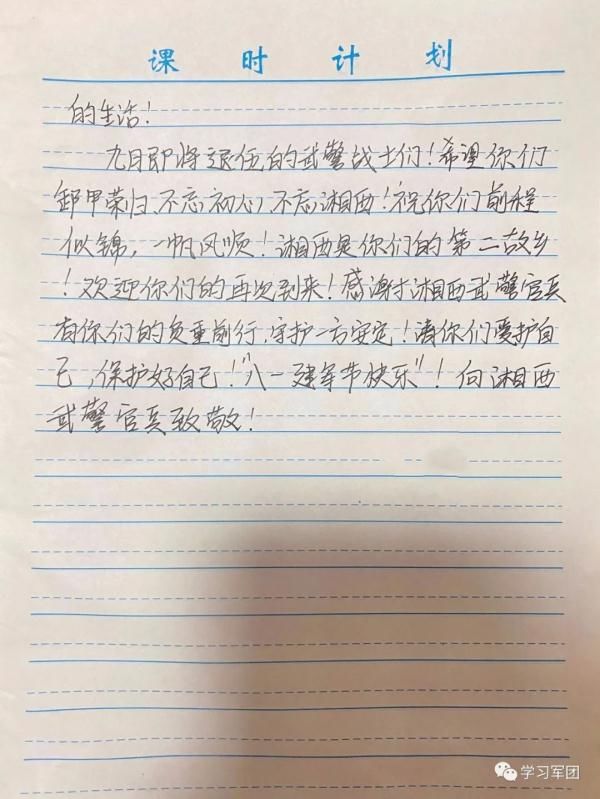 课时计划
的生活！
九月即将退伍的武警战士们！希望你们
卸甲荣归、不忘初心，不忘湘西！祝你们前程
似锦，一帆风顺！湘西是你们的第二故乡
！欢迎你们的再次到来！感谢湘西武警官兵
有你们的负重前行，守护一方安定！请你们爱护自
己，保护好自己！“八一建军节快乐”！向湘西
武警官兵致敬！
学习军团